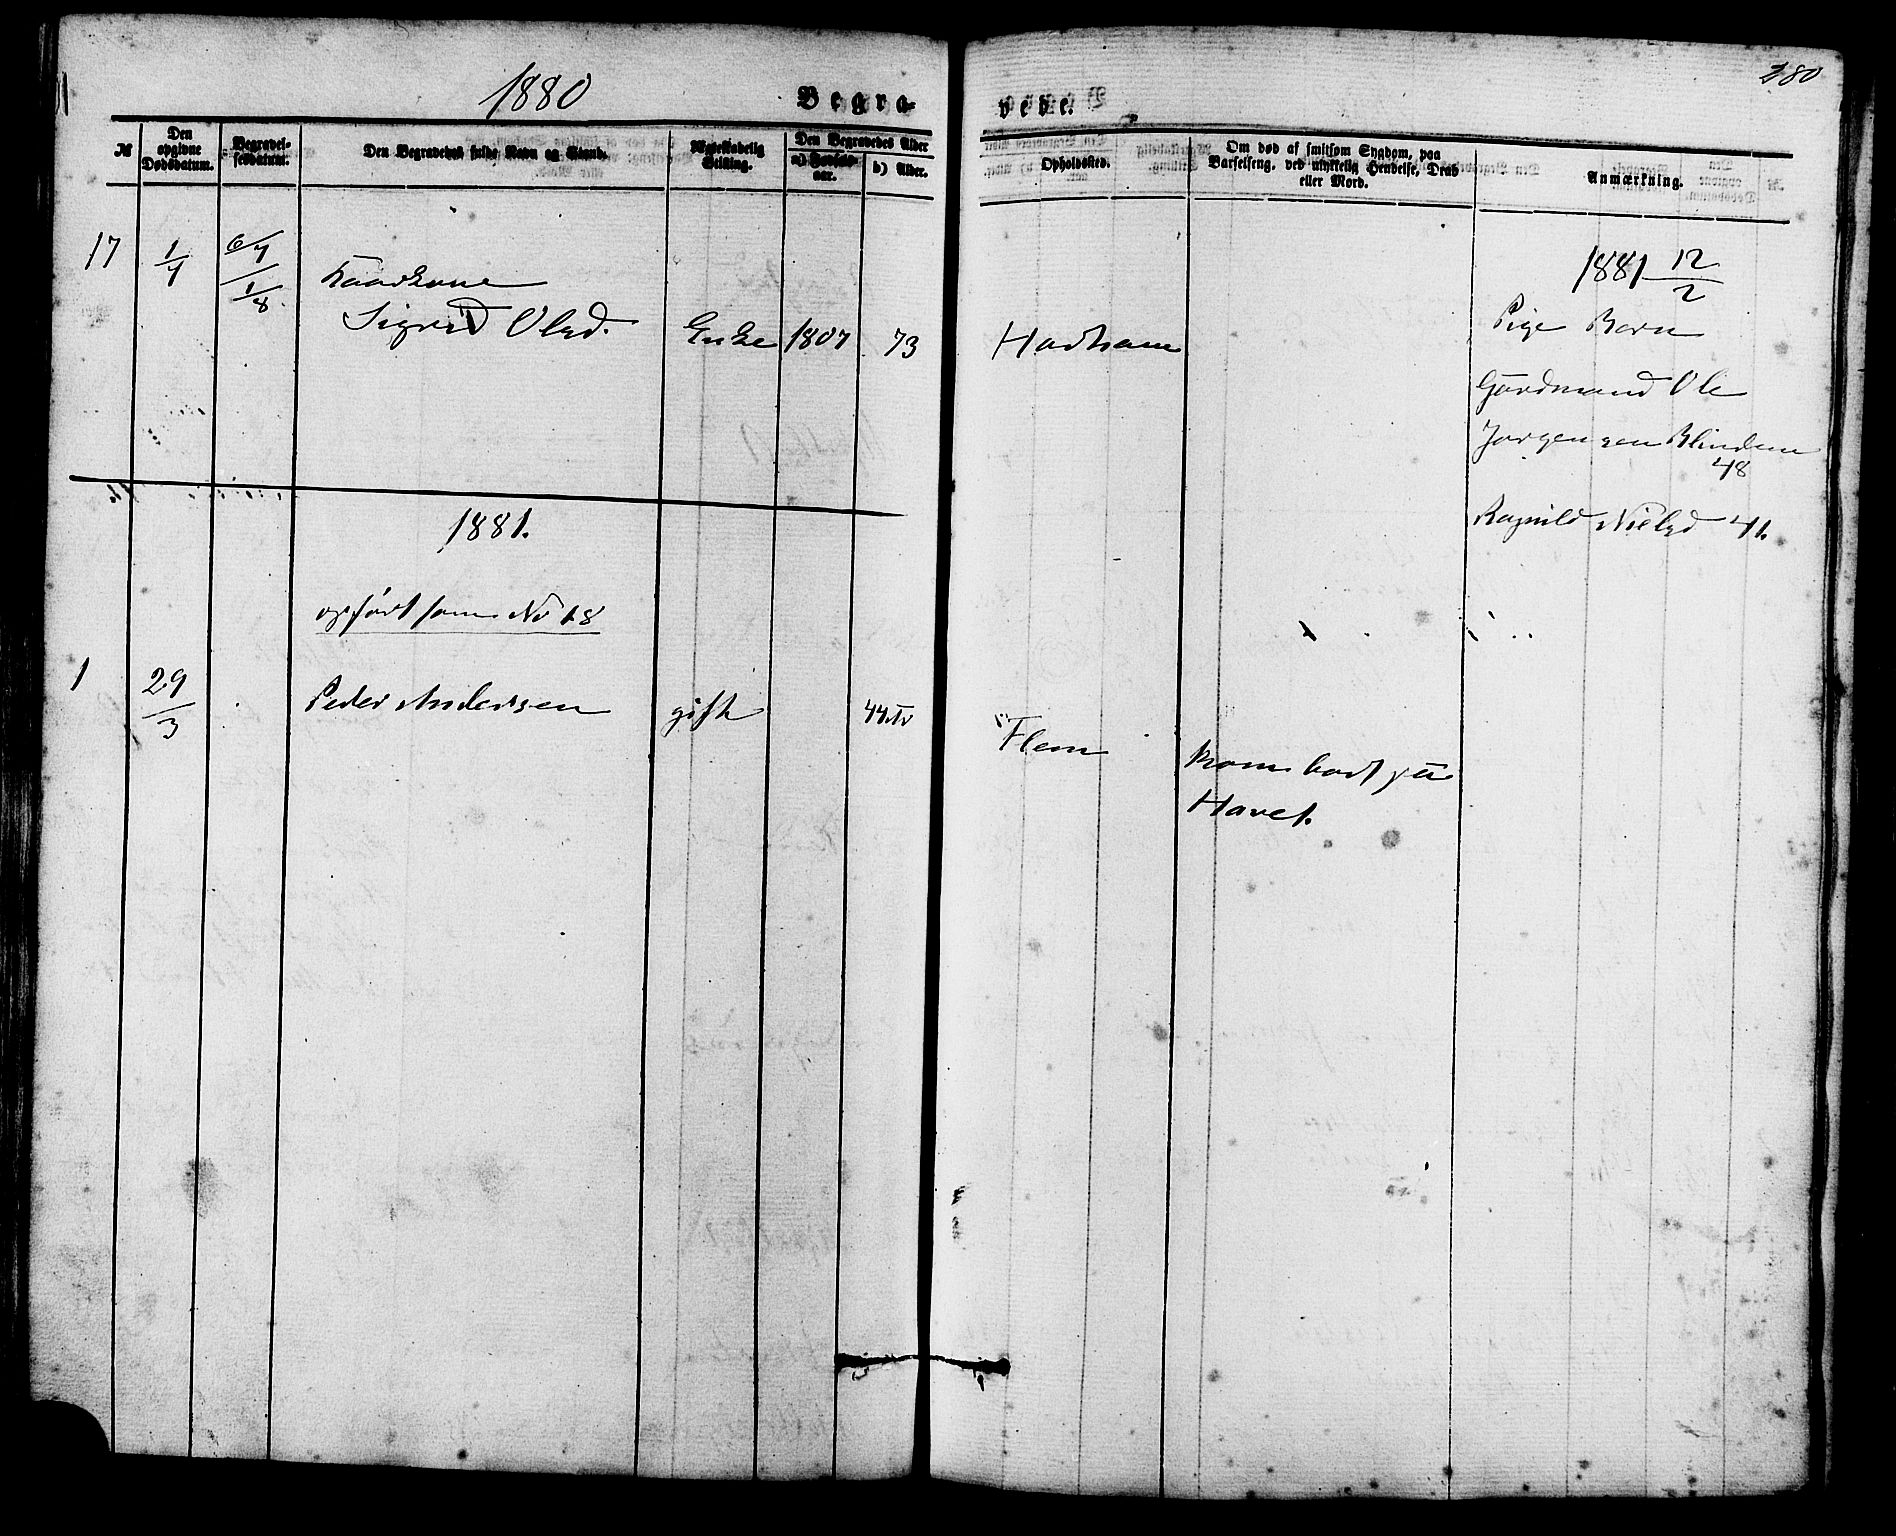 1880
Begra-
vede.
380
№
Den opgivne Dødsdatum.
Begravel-sesdatum.
Den Begravedes fulde Navn og Stand.
Ægteskabelig Stilling.
Den Begravedes Alder
a) Fødselsaar.
b) Alder.
Opholdssted.
Om død af smitsom Sygdom, paa Barselseng, ved ulykkelig Hendelse, Drab eller Mord.
Anmærkning.
17
1/7
6/7
1/8
Kaarkone
Sigrid Olsd.
Enke
1807
73
Hadham
1881 12/2
Pige Barn
Gårdmand Ole
Jørgensen Blindem
48
Ragnild Nielsd 41.
1881.
opført som No 18
1
29/3
Peder Andersen
gift
44
Flem
Kom bort på
Havet.